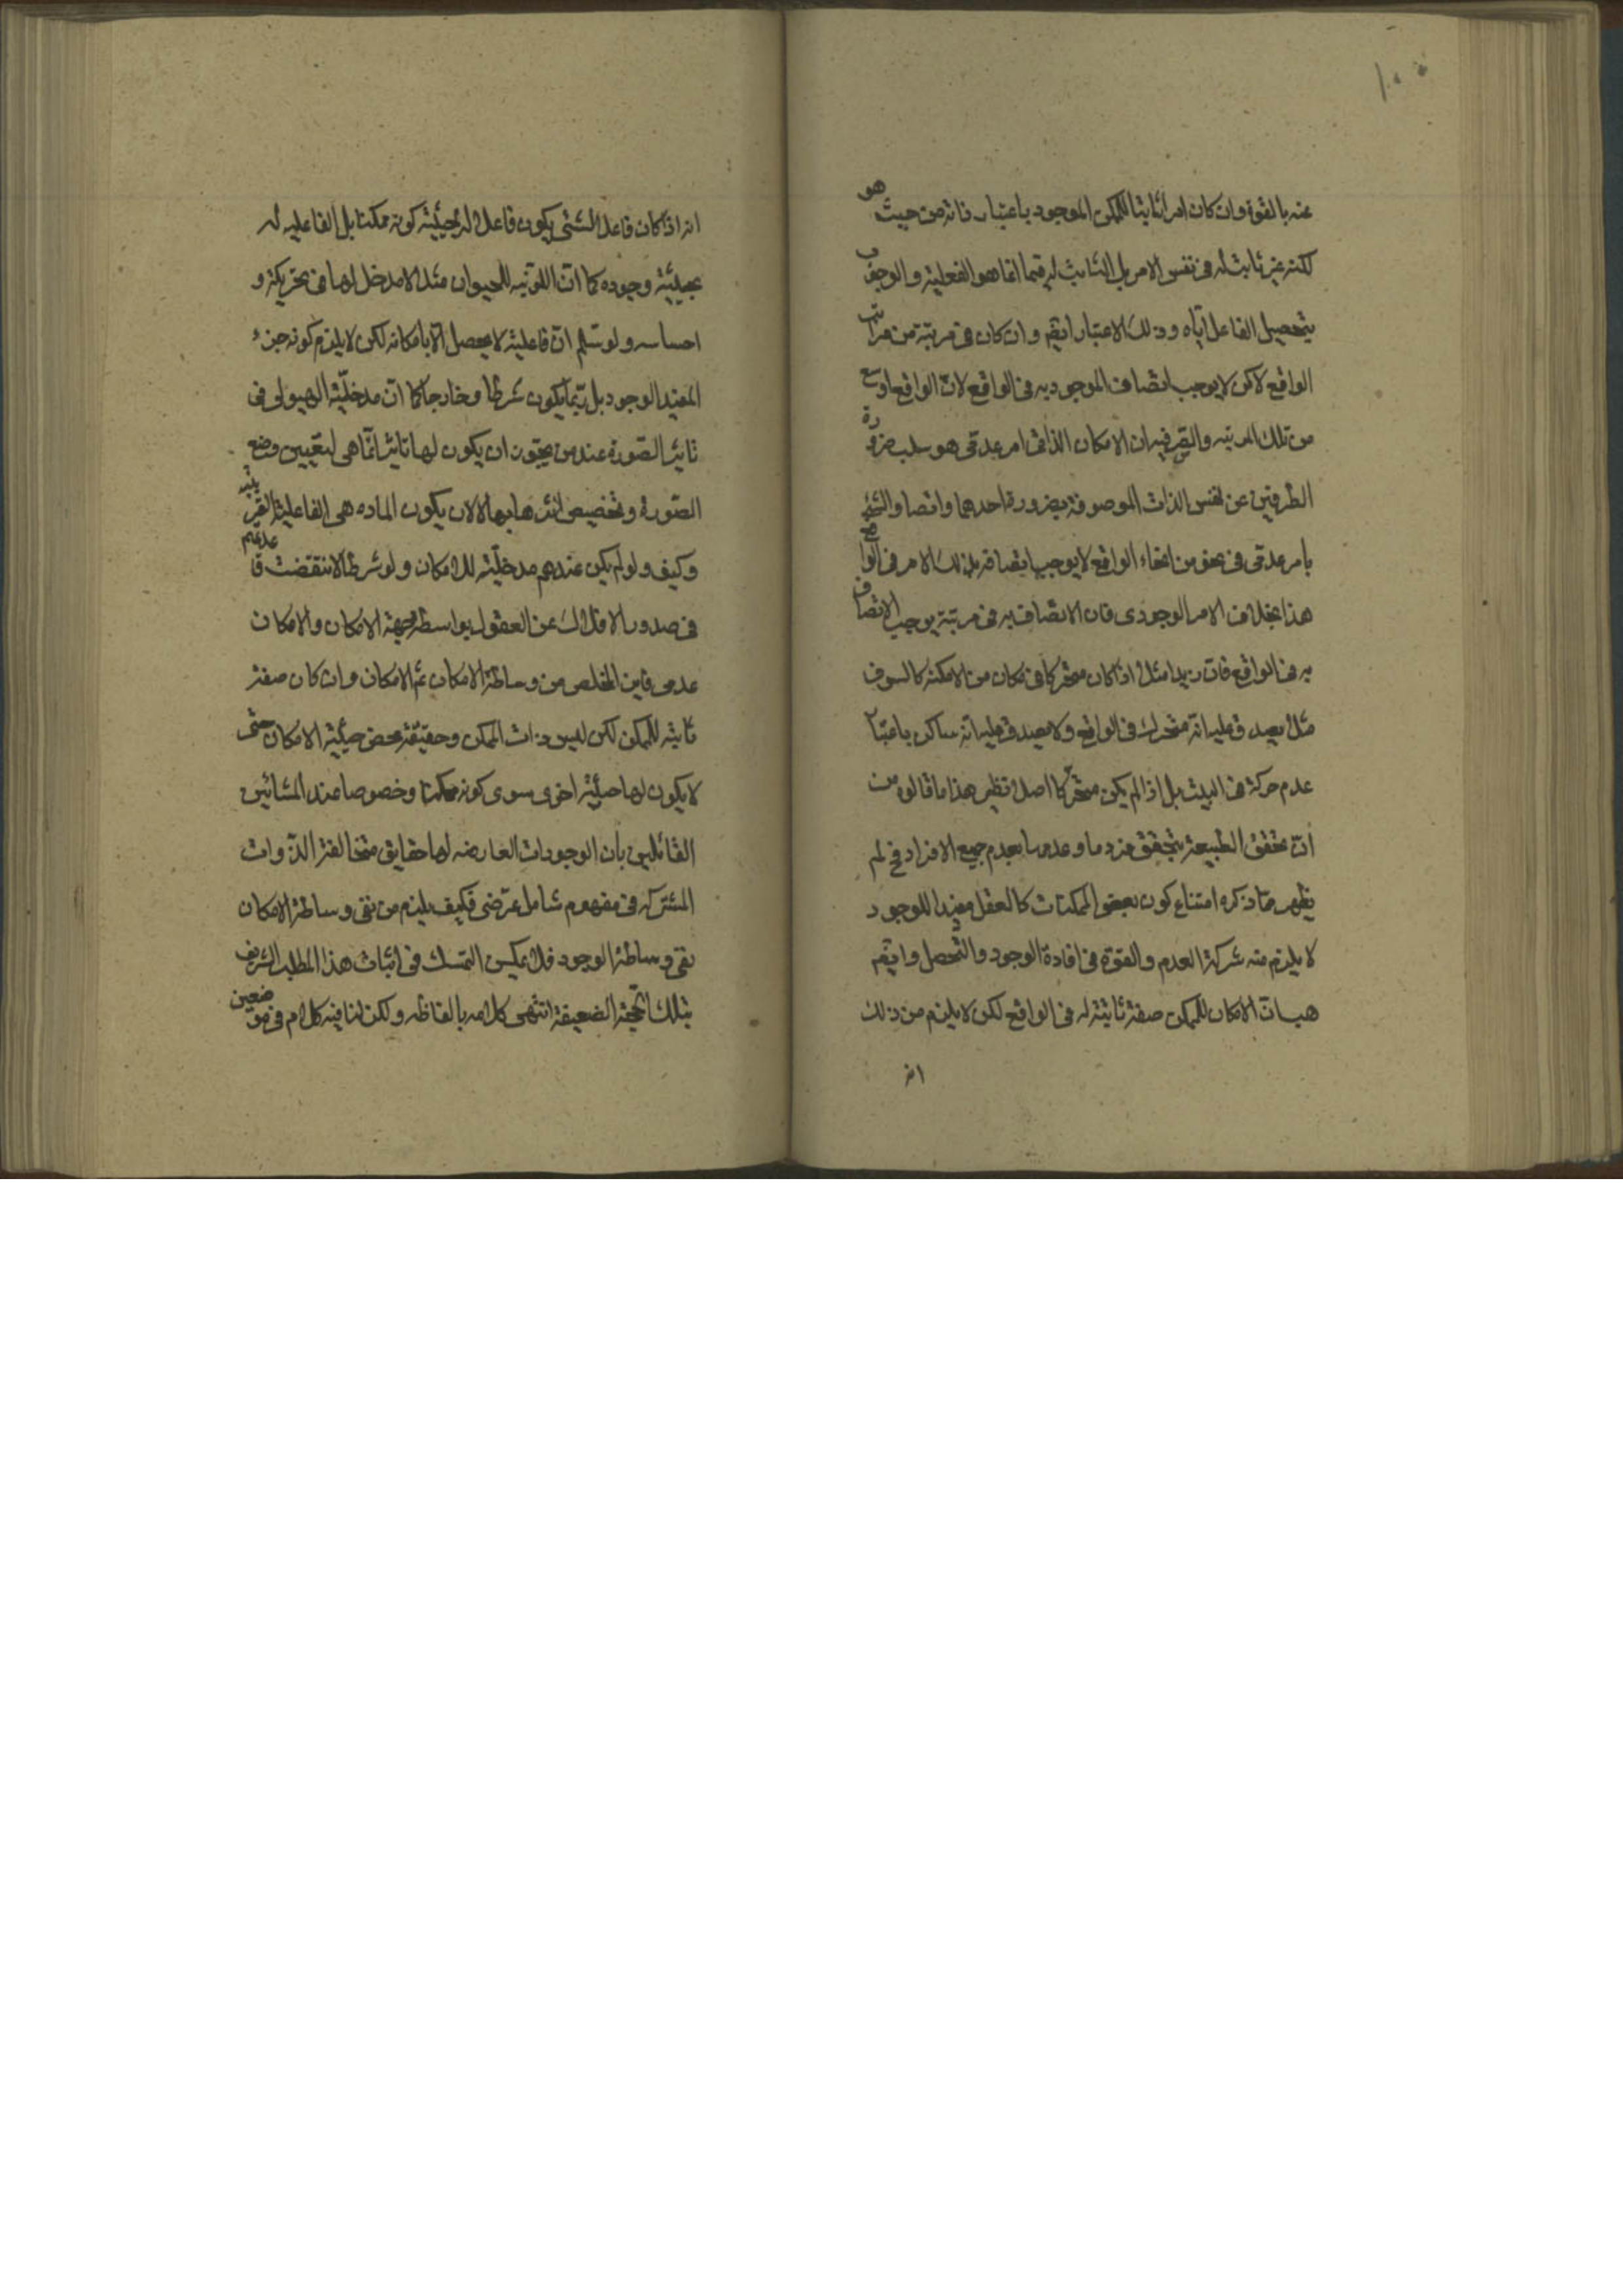 عنه بالقوة وان كان امرا ثابتا للممكن الموجود باعتبار ذاته من حيث هو
لكنه غير ثابت له فى نفس الامر بل الثابت له فيها انما هو الفعلية والوجوب
بتحصيل الفاعل اياه وذلك الاعتبار ايضم وان كان فى مرتبة من مراتب
الواقع لاكن لا يوجب اتصاف الموجود به فى الواقع لان الواقع اوسع
من تلك المرتبه والسر فيه ان الامكان الذاتى امر عدمى هو سلب ضرورة
الطرفين عن نفس الذات الموصوفة بضرورة احدهما واتصاف الشئ
بامر عدمى فى نحو من انحاء الواقع لا يوجب اتصافه بذلك الامر فى الواقع
هذا بخلاف الامر الوجودى فان الاتصاف به فى مرتبة يوجب الاتصاف
به فى الواقع فان زيدا مثلا اذا كان متحركا فى مكان من الامكنة كالسوق
مثلا يصدق عليه انه متحرك فى الواقع ولا يصدق عليه انه ساكن باعتبار
عدم حركة فى البيت بل اذا لم يكن متحركا اصلا ونظير هذا ما قالوه من
ان تحقق الطبيعة بتحقق فرد ما وعدمها بعدم جميع الافراد فح لم
يظهر مما ذكره امتناع كون بعض الممكنات كالعقل مفيدا للوجود
لا يلزم منه شركة العدم والقوة فى افادة الوجود والتحصل وايضم
هب ان الامكان للممكن صفة ثابتة له فى الواقع لكن لا يلزم من ذلك
انه
انه اذا كان فاعلا لشئ يكون فاعلا له بحيثية كونه ممكنا بل الفاعليه له
بحيثية وجوده كما ان اللونيه للحيوان مثلا لا مدخل لها فى تحريكه و
احساسه ولو سلم ان فاعليته لا يحصل الا بامكانه لكن لا يلزم كونه جزء
المفيد الوجود بل ربما يكون شرطا وخارجا كما ان مدخلية الهيولى فى
تاثير الصورة عند من يجوز ان يكون لها تاثير انما هى لتعيين وضع
الصورة وتخصيص اثرها بها لا لان يكون الماده هى الفاعلية القريبة
وكيف ولو لم يكن عندهم مدخلية للامكان ولو شرطا لانتقضت قاعدتهم
فى صدور الافلاك عن العقول بواسطة جهة الامكان والامكان
عدمى فاين المخلص من وساطة الامكان ثم الامكان وان كان صفة
ثابته للممكن لكن ليس ذات الممكن وحقيقته محض حيثية الامكان حتى
لا يكون لها حيثية اخرى سوى كونه ممكنا وخصوصا عند المشائين
القائلين بان الوجودات العارضه لها حقايق متخالفة الذوات
المشتركه فى مفهوم شامل عرضى فكيف يلزم من نفى وساطة الامكان
نفى وساطة الوجود فلا يمكن التمسك فى اثبات هذا المطلب الشريف
بتلك الحجة الضعيفة انتهى كلامه بالفاظه ولكن لنا فيه كلام فى موضعين